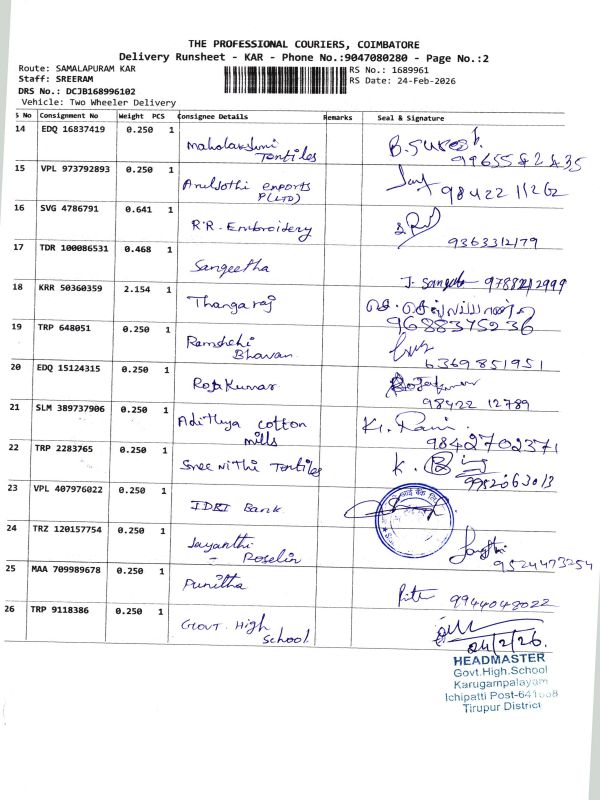 THE PROFESSIONAL COURIERS, COIMBATORE
Delivery Runsheet - KAR - Phone No.:9047080280 - Page No.:2
Route: SAMALAPURAM KAR
RS No.: 1689961
Staff: SREERAM
RS Date: 24-Feb-2026
DRS No.: DCJB168996102
Vehicle: Two Wheeler Delivery
S No Consignment No Weight PCS Consignee Details Remarks Seal & Signature
14 EDQ 16837419 0.250 1
Mahalakshmi Textiles
B. Suresh
15 VPL 973792893 0.250 1
Aruljothi exports P(LTD)
98422 11262
16 SVG 4786791 0.641 1
R.R. Embroidery
9363312179
17 TDR 100086531 0.468 1
Sangeetha
J. Sangeetha
18 KRR 50360359 2.154 1
Thangaraj
9688375236
19 TRP 648051 0.250 1
Bhavan
6369851951
20 EDQ 15124315 0.250 1
RajaKumar
98422 12789
21 SLM 389737906 0.250 1
Adithya cotton mills
K. Rani
9842702371
22 TRP 2283765 0.250 1
Sree Nithi Textiles
9952063013
23 VPL 407976022 0.250 1
IDBI Bank
24 TRZ 120157754 0.250 1
Jayanthi - Roselin
9524473254
25 MAA 709989678 0.250 1
Punitha
9944048022
26 TRP 9118386 0.250 1
Govt. High School
24/2/26.
HEADMASTER
Govt.High.School
Karugampalayam
Ichipatti Post-641668
Tirupur District